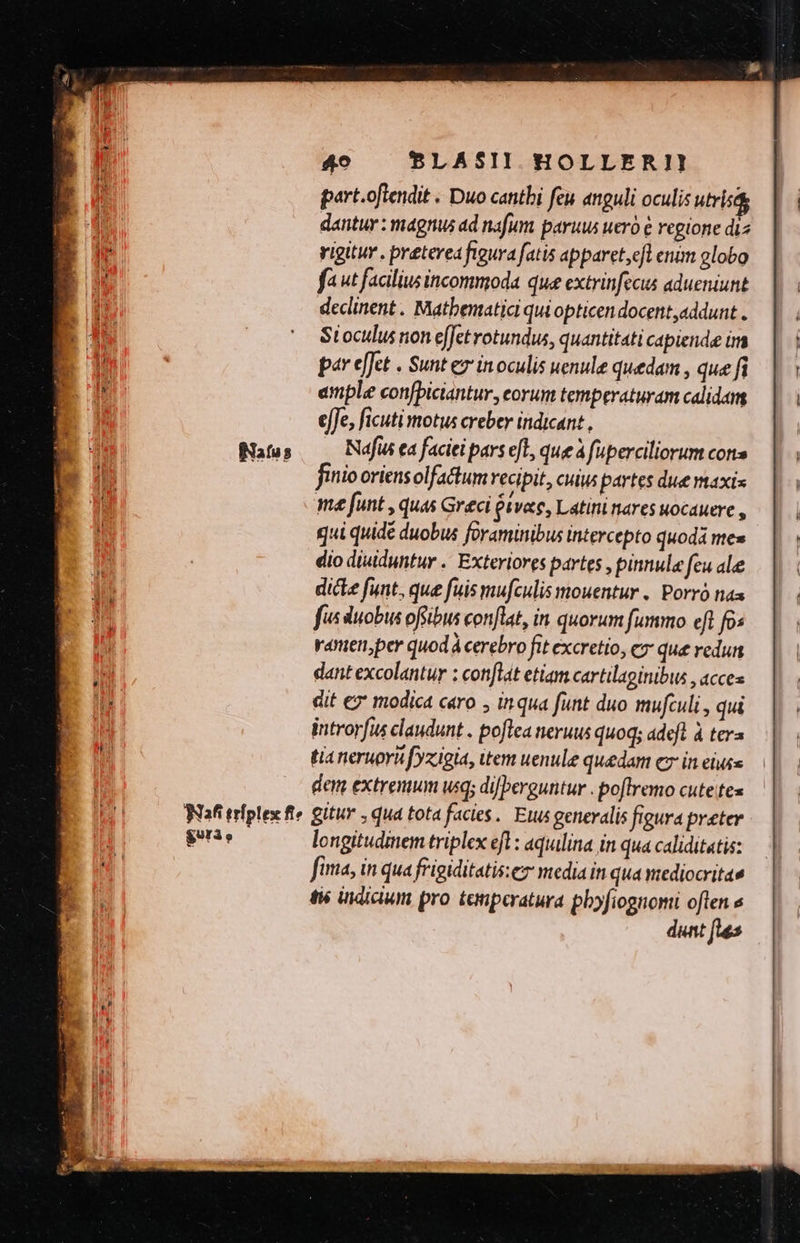 40 BLASII HOLLERII
part.oſtendit. Duo canthi ſeu anguli oculis utrisq;
dantur: magnus ad naſum paruus uerò è regione di=
rigitur. præterea figura ſatis apparet, eſt enim globo
ſa ut facilius incommoda quæ extrinſecus adueniunt
declinent. Mathematici qui opticen docent, addunt.
Si oculus non eſſet rotundus, quantitati capiendæ im
par eſſet. Sunt & in oculis uenulæ quædam, quæ ſi
amplæ conſpiciantur, eorum temperaturam calidam
eſſe, ſicuti motus creber indicant,
Naſus
Naſus ea faciei pars eſt, quæ à ſuperciliorum con=
finio oriens olfactum recipit, cuius partes duæ maxi=
mæ ſunt, quas Græci ῥῖνας, Latini nares uocauere,
qui quidē duobus foraminibus intercepto quodā me=
dio diuiduntur. Exteriores partes, pinnulæ ſeu alæ
dictæ ſunt, quæ ſuis muſculis mouentur. Porrò na=
ſus duobus oſsibus conſtat, in quorum ſummo eſt fo=
ramen, per quod à cerebro fit excretio, & quæ redun
dant excolantur: conſtat etiam cartilaginibus, acce=
dit & modica caro, in qua ſunt duo muſculi, qui
introrſus claudunt. poſtea neruus quoq; adeſt à ter=
tia neruorū ſyzigia, item uenulæ quædam & in eius=
dem extremum usq; diſperguntur. poſtremo cute te=
Naſi triplex fi=
gitur, qua tota facies. Eius generalis figura præter
guræ.
longitudinem triplex eſt: aquilina in qua caliditatis:
ſima, in qua frigiditatis: & media in qua mediocrita=
tis indicium pro temperatura phyſiognomi oſten=
dunt ſtes